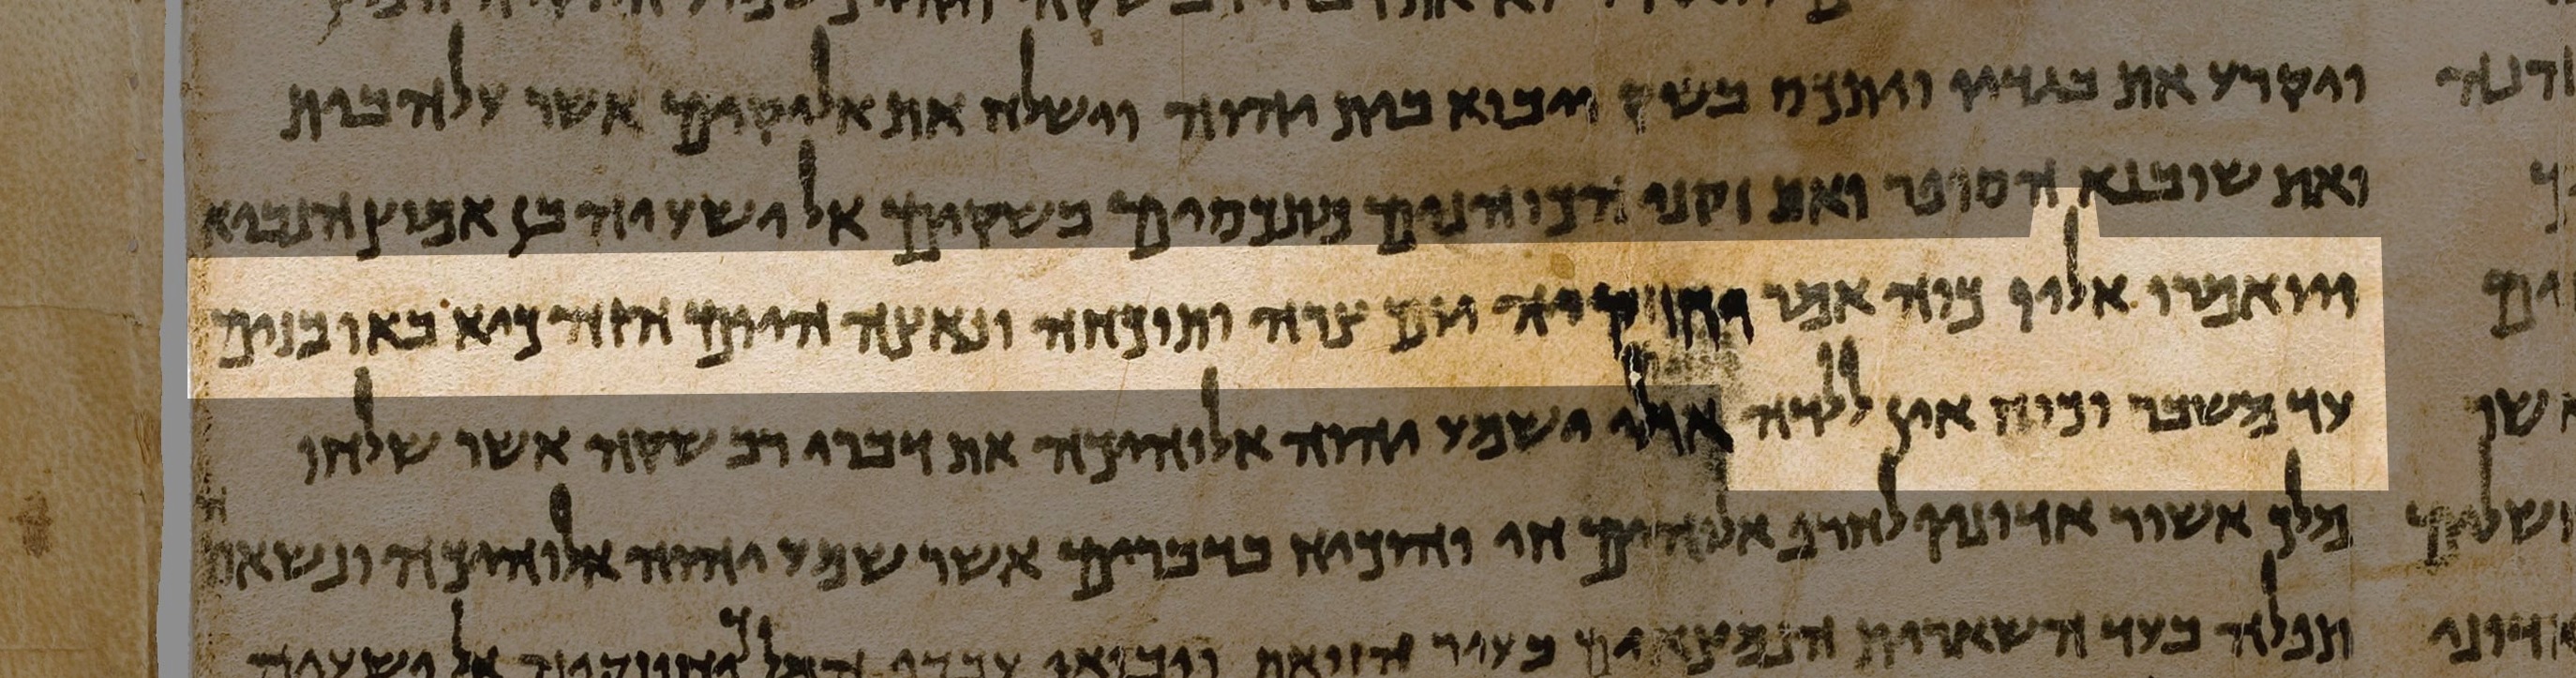 ויקרע את בגדיו ויתכס בשק ויבוא בית יהוה וישלח את אליקים אשר על הבית
ואת שובנא הסופר ואת זקני הכוהנים מתכסים בשקים אל ישעיה בן אמוץ הנביא
ויואמרו אליו כוה אמר יחוזקיה יום צרה ותוכחה ונאצה היום הזה כיא באו בנים
עד משבר וכוח אין ללדה אולי ישמע יהוה אלוהיכה את דברי רב שקה אשר שלחו
מלך אשור אדוניו לחרף אלהים חי והוכיח בדברים אשר שמע יהוה אלוהיכה ונשאתה
תפלה בעד השארית הנמצאים בעיר הזואת ויבואו עבדי המלך יחוזקיה אל ישעיה